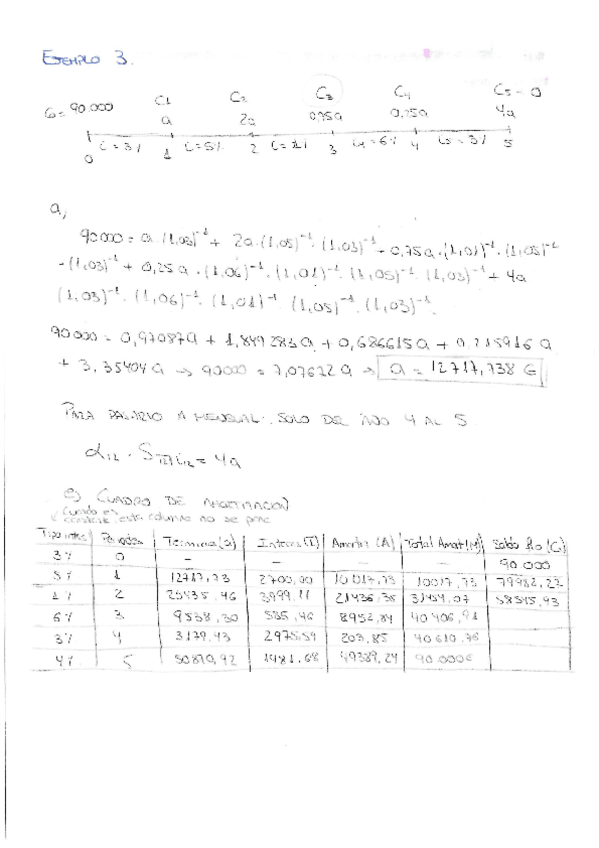 EJEMPLO 3.
C1 C2 C3 C4 C5 = 0
G = 90.000 a 2a 0,75a 0,25a 4a
i = 3% i = 5% i = 1% i4 = 6% i5 = 3%
0 1 2 3 4 5
a,
90000 = a (1,03)⁻¹ + 2a · (1,05)⁻¹ · (1,03)⁻¹ - 0,75a · (1,01)⁻¹ · (1,05)⁻¹
· (1,03)⁻¹ + 0,25a · (1,06)⁻¹ · (1,01)⁻¹ · (1,05)⁻¹ · (1,03)⁻¹ + 4a
(1,03)⁻¹ · (1,06)⁻¹ · (1,01)⁻¹ · (1,05)⁻¹ · (1,03)⁻¹.
90000 = 0,97087a + 1,849283a + 0,686615a + 0,215916a
+ 3,35404a → 90000 = 7,07622a → a = 12717,738 €
PARA PASARLO A MENSUAL. SOLO DEL AÑO 4 AL 5
α12 · S12┐i12 = 4a
e) CUADRO DE AMORTIZACION
(cuando es constante, esta columna no se pone
Tipo interes Periodos Termino (a) Interes (I) Amortiz (A) Total Amort (M) Saldo Rto (C)
3% 0 – – – – 90.000
5% 1 12717,73 2700,00 10017,73 10017,73 79982,27
1% 2 25435,46 3999,11 21436,35 31454,07 58545,93
6% 3 9538,30 585,46 8952,84 40406,91
3% 4 3179,43 2975,59 203,85 40610,76
4% 5 50870,92 1481,68 49389,24 90.000€